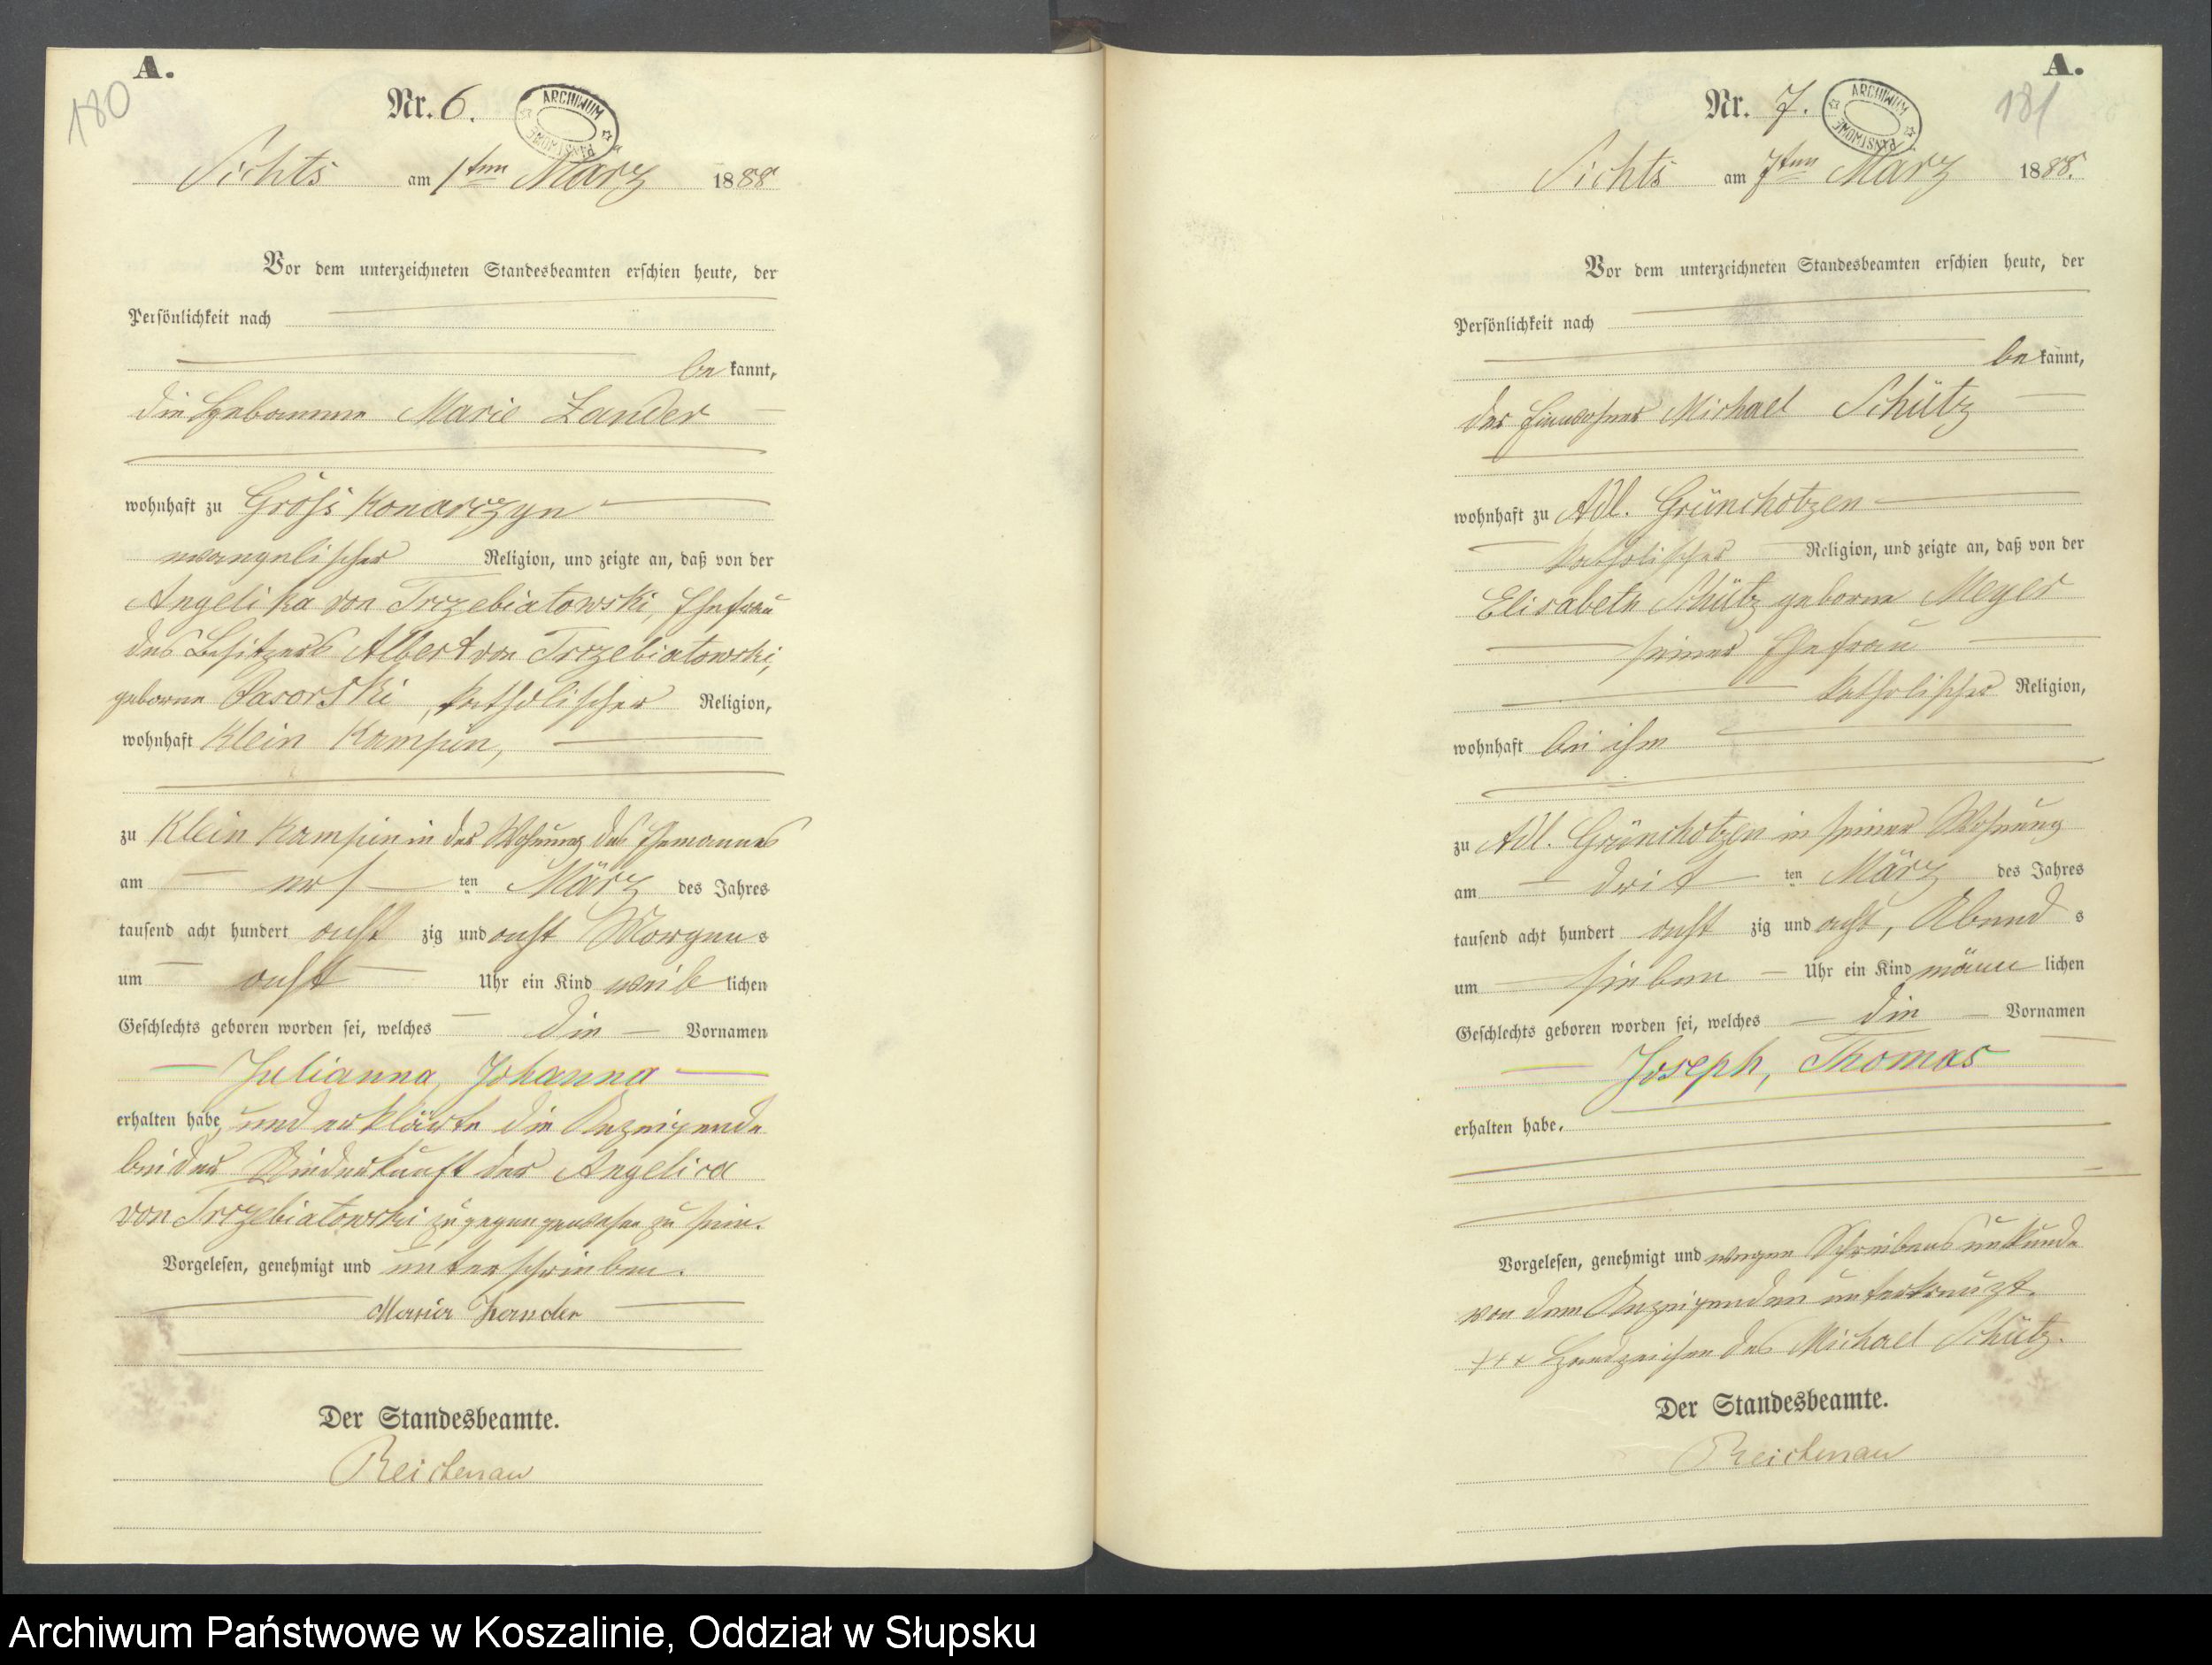 A.
180
Nr. 6.
ARCHIWUM PAŃSTWOWE
Sichts am 1ten März 1888
Vor dem unterzeichneten Standesbeamten erschien heute, der
Persönlichkeit nach
bekannt,
die Hebamme Marie Zander
wohnhaft zu Groß Konarczyn
evangelischer Religion, und zeigte an, daß von der
Angelika von Trzebiatowski, Ehefrau
des Besitzers Albert von Trzebiatowski,
geborne Pasorski, katholischer Religion,
wohnhaft Klein Kampin,
zu Klein Kampin in der Wohnung des Ehemannes
am ersten März des Jahres
tausend acht hundert achtzig und acht Morgens
um acht Uhr ein Kind weiblichen
Geschlechts geboren worden sei, welches die Vornamen
Julianna, Johanna
erhalten habe, und erklärte die Anzeigende
bei der Niederkunft der Angelica
von Trzebiatowski zugegen gewesen zu sein.
Vorgelesen, genehmigt und unterschrieben.
Maria Zander
Der Standesbeamte.
Reichenau
A.
181
Nr. 7.
ARCHIWUM PAŃSTWOWE
Sichts am 7ten März 1888.
Vor dem unterzeichneten Standesbeamten erschien heute, der
Persönlichkeit nach
bekannt,
der Einwohner Michael Schütz
wohnhaft zu Adl. Grünchotzen
katholischer Religion, und zeigte an, daß von der
Elisabeth Schütz geborne Meyer
seiner Ehefrau
katholischer Religion,
wohnhaft bei ihm
zu Adl. Grünchotzen in seiner Wohnung
am dritten März des Jahres
tausend acht hundert achtzig und acht, Abends
um sieben Uhr ein Kind männlichen
Geschlechts geboren worden sei, welches die Vornamen
Joseph, Thomas
erhalten habe.
Vorgelesen, genehmigt und wegen Schreibensunkunde
von dem Anzeigenden unterkreuzt.
+++ Handzeichen des Michael Schütz.
Der Standesbeamte.
Reichenau
Archiwum Państwowe w Koszalinie, Oddział w Słupsku